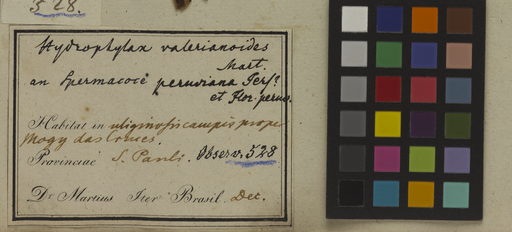 528.
Hydrophylax valerianoides
Mart.
an Spermacoce peruviana Pers?
et Flor. peruv.
Habitat in uliginosis campis prope
Mogy das Cruces.
Provinciae S. Pauli. Observ. 528
Dr Martius Iter Brasil. Dec.